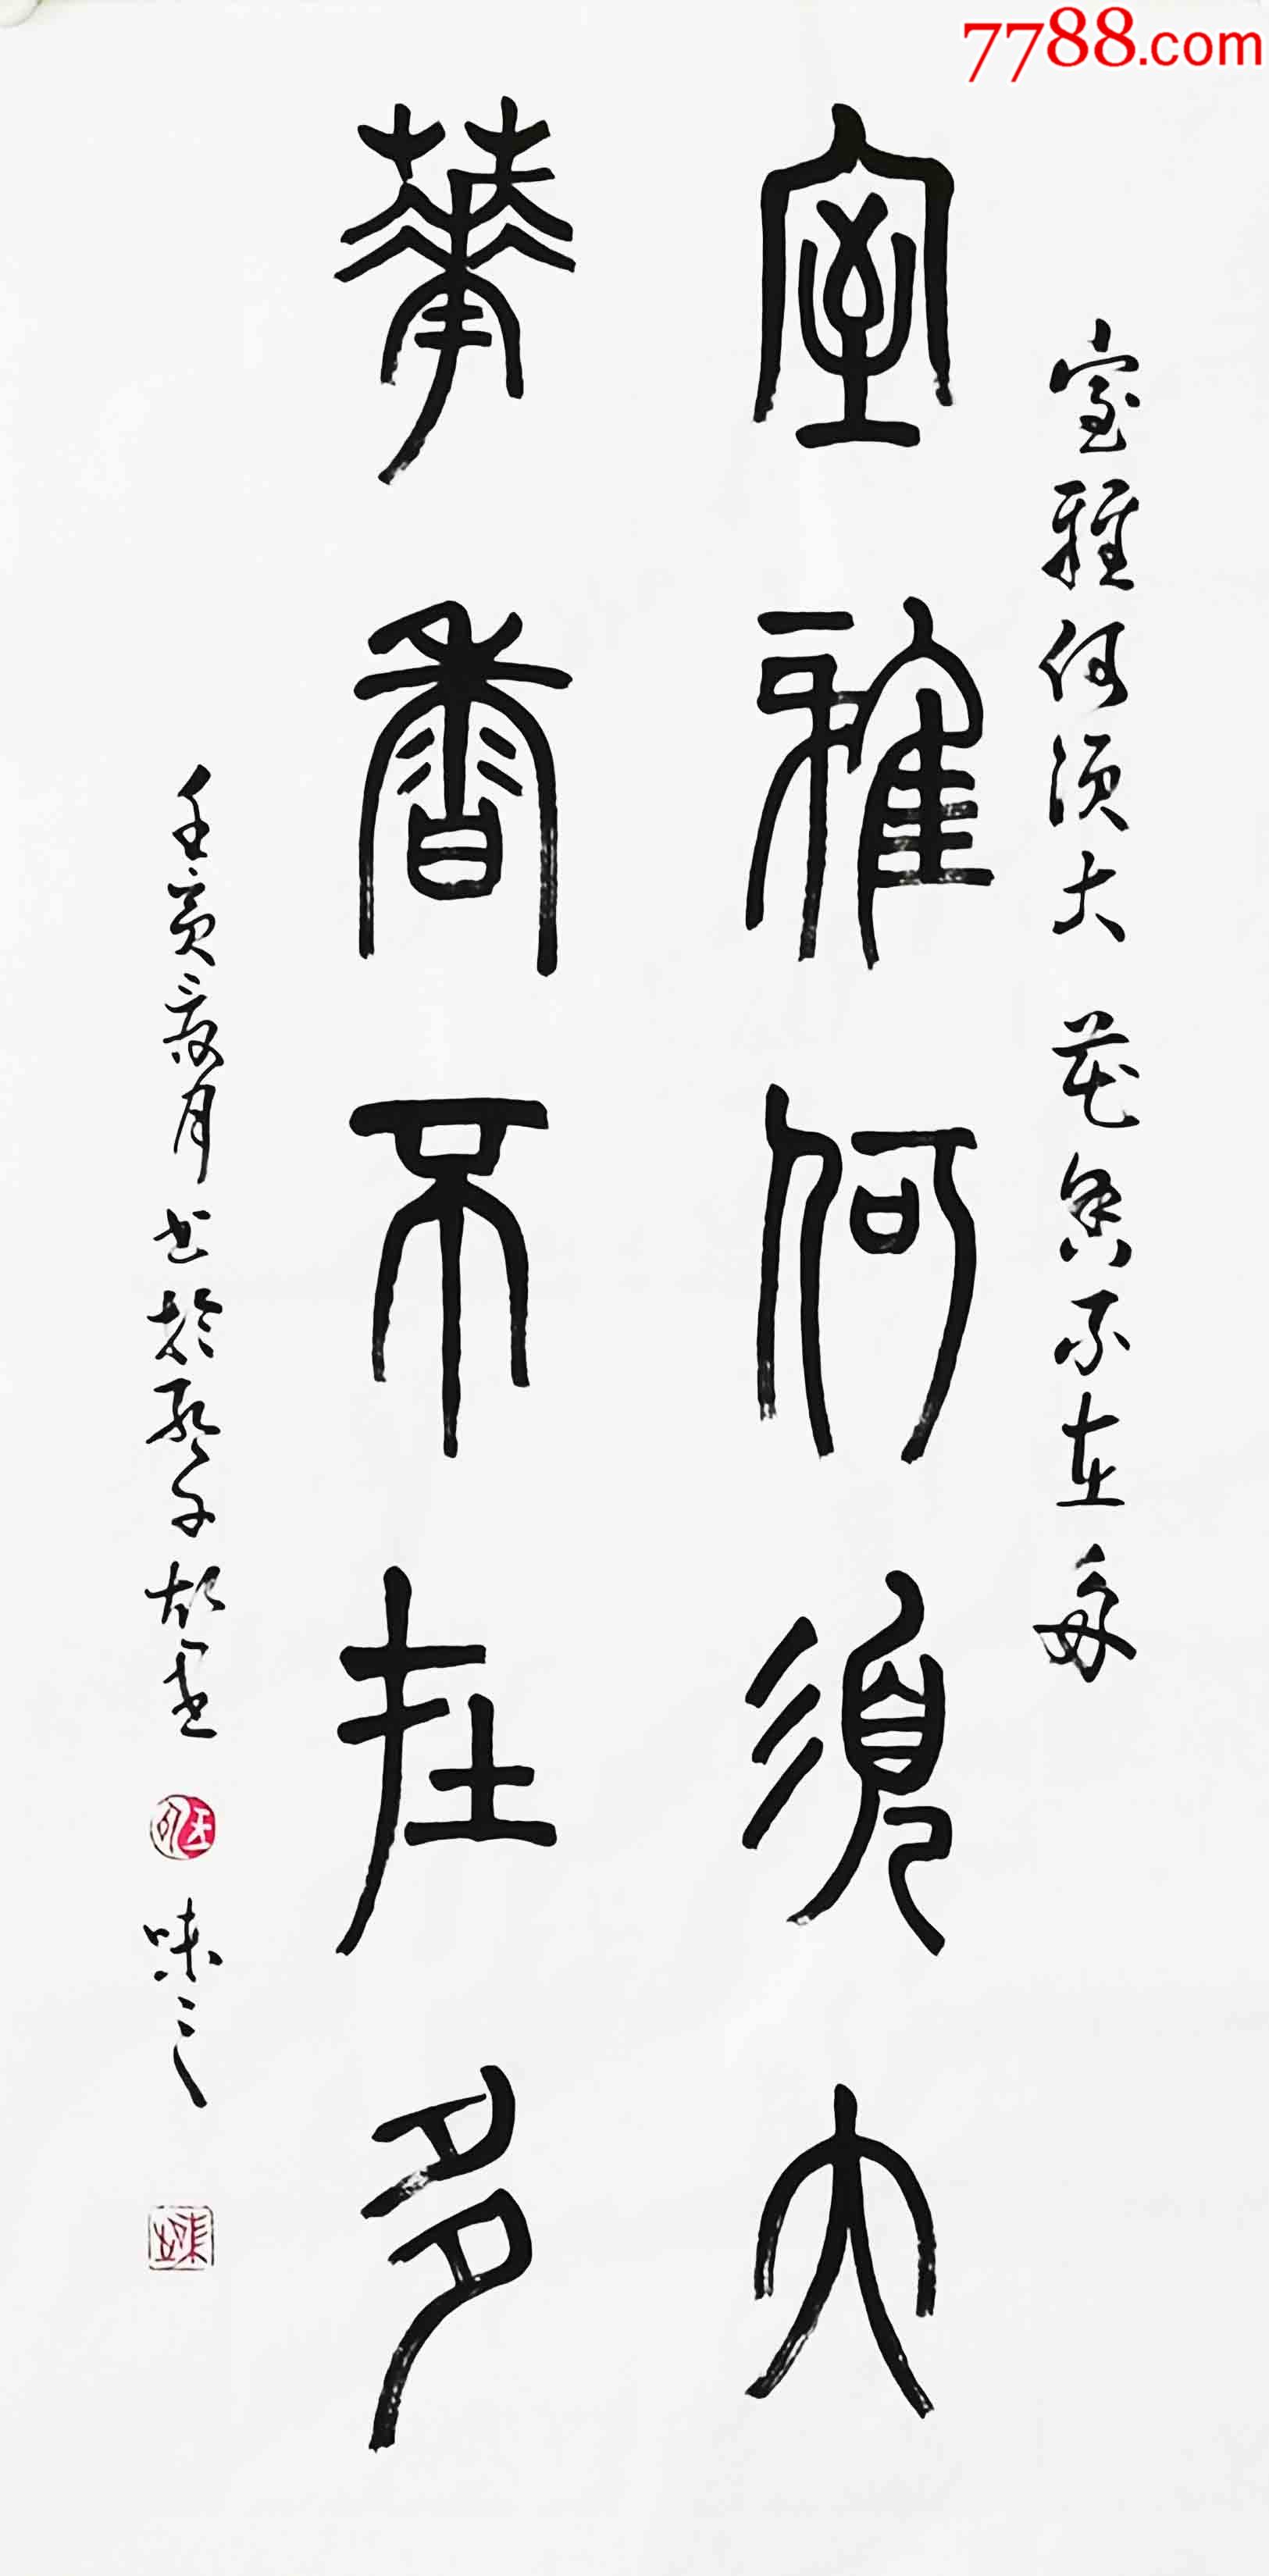 7788.com
室雅何须大 花香不在多
室雅何須大
華香不在多
壬寅夏月书於
味之